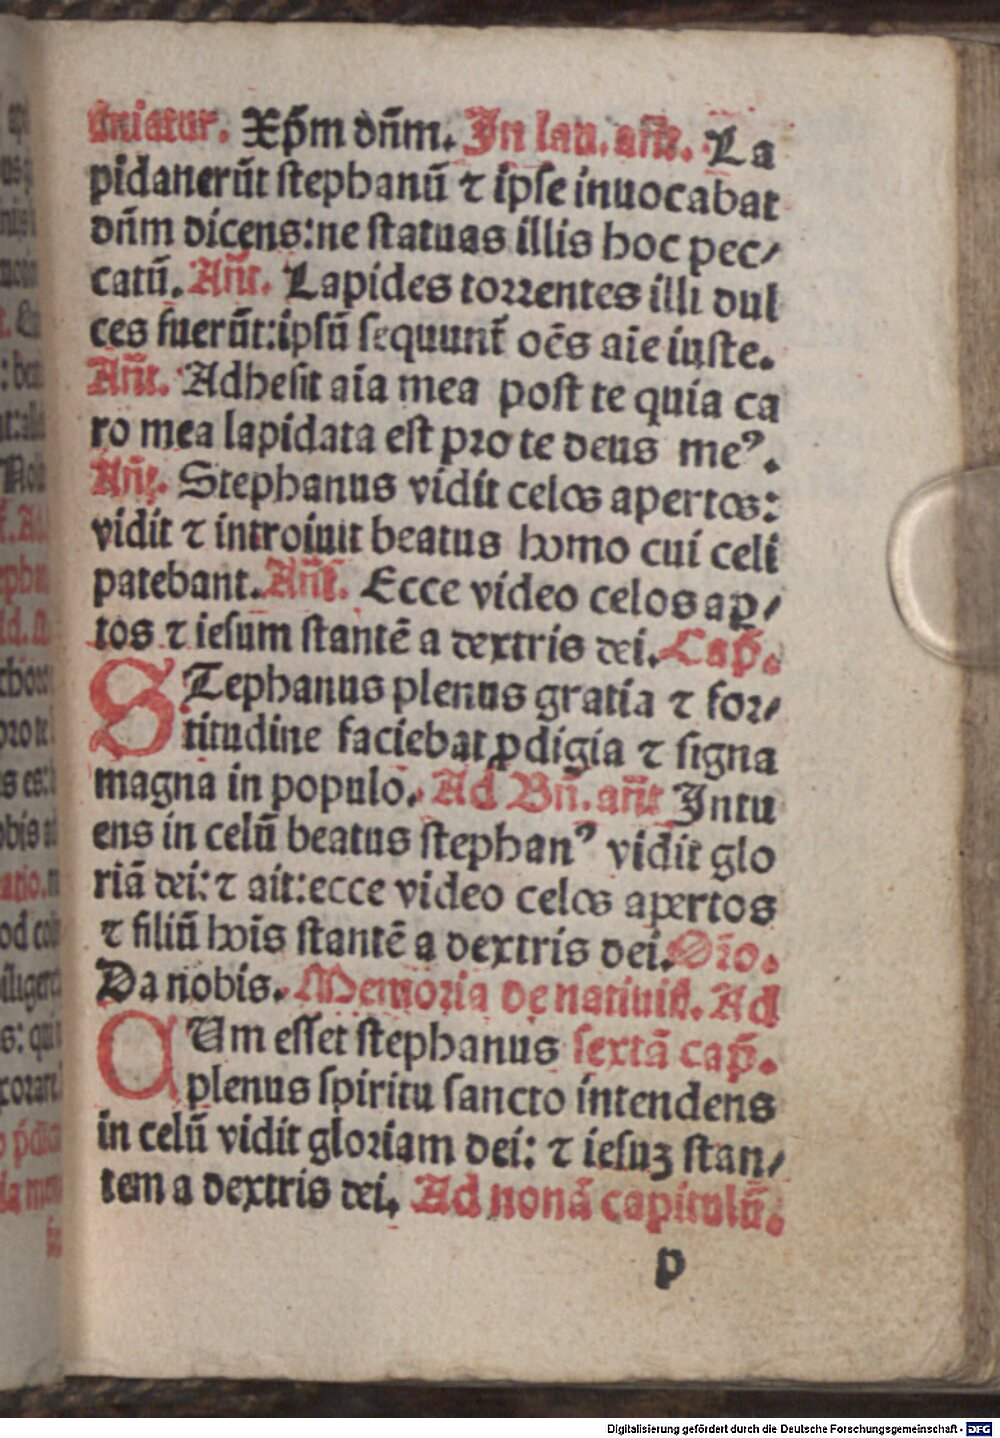 finiatur. Xp̄m dn̄m. In lau. an̄t. La
pidauerūt stephanū ⁊ ipse inuocabat
dn̄m dicens: ne statuas illis hoc pec⸗
catū. An̄t. Lapides torrentes illi dul
ces fuerūt: ipsū sequunt̄ oēs aīe iuste.
An̄t. Adhesit aīa mea post te quia ca
ro mea lapidata est pro te deus meꝰ.
An̄t. Stephanus vidit celos apertos:
vidit ⁊ introiuit beatus homo cui celi
patebant. An̄t. Ecce video celos ap̱⸗
tos ⁊ iesum stantē a dextris dei. Cap̄.
STephanus plenus gratia ⁊ for⸗
titudine faciebat ꝓdigia ⁊ signa
magna in populo. Ad Bn̄. an̄t Intu
ens in celū beatus stephanꝰ vidit glo
riā dei: ⁊ ait: ecce video celos apertos
⁊ filiū hoīs stantē a dextris dei. Or̄o.
Da nobis. Memoria de natiuit. Ad
CUm esset stephanus sextā cap̄.
plenus spiritu sancto intendens
in celū vidit gloriam dei: ⁊ iesuꝫ stan⸗
tem a dextris dei. Ad nonā capitulū.
p
Digitalisierung gefördert durch die Deutsche Forschungsgemeinschaft - DFG